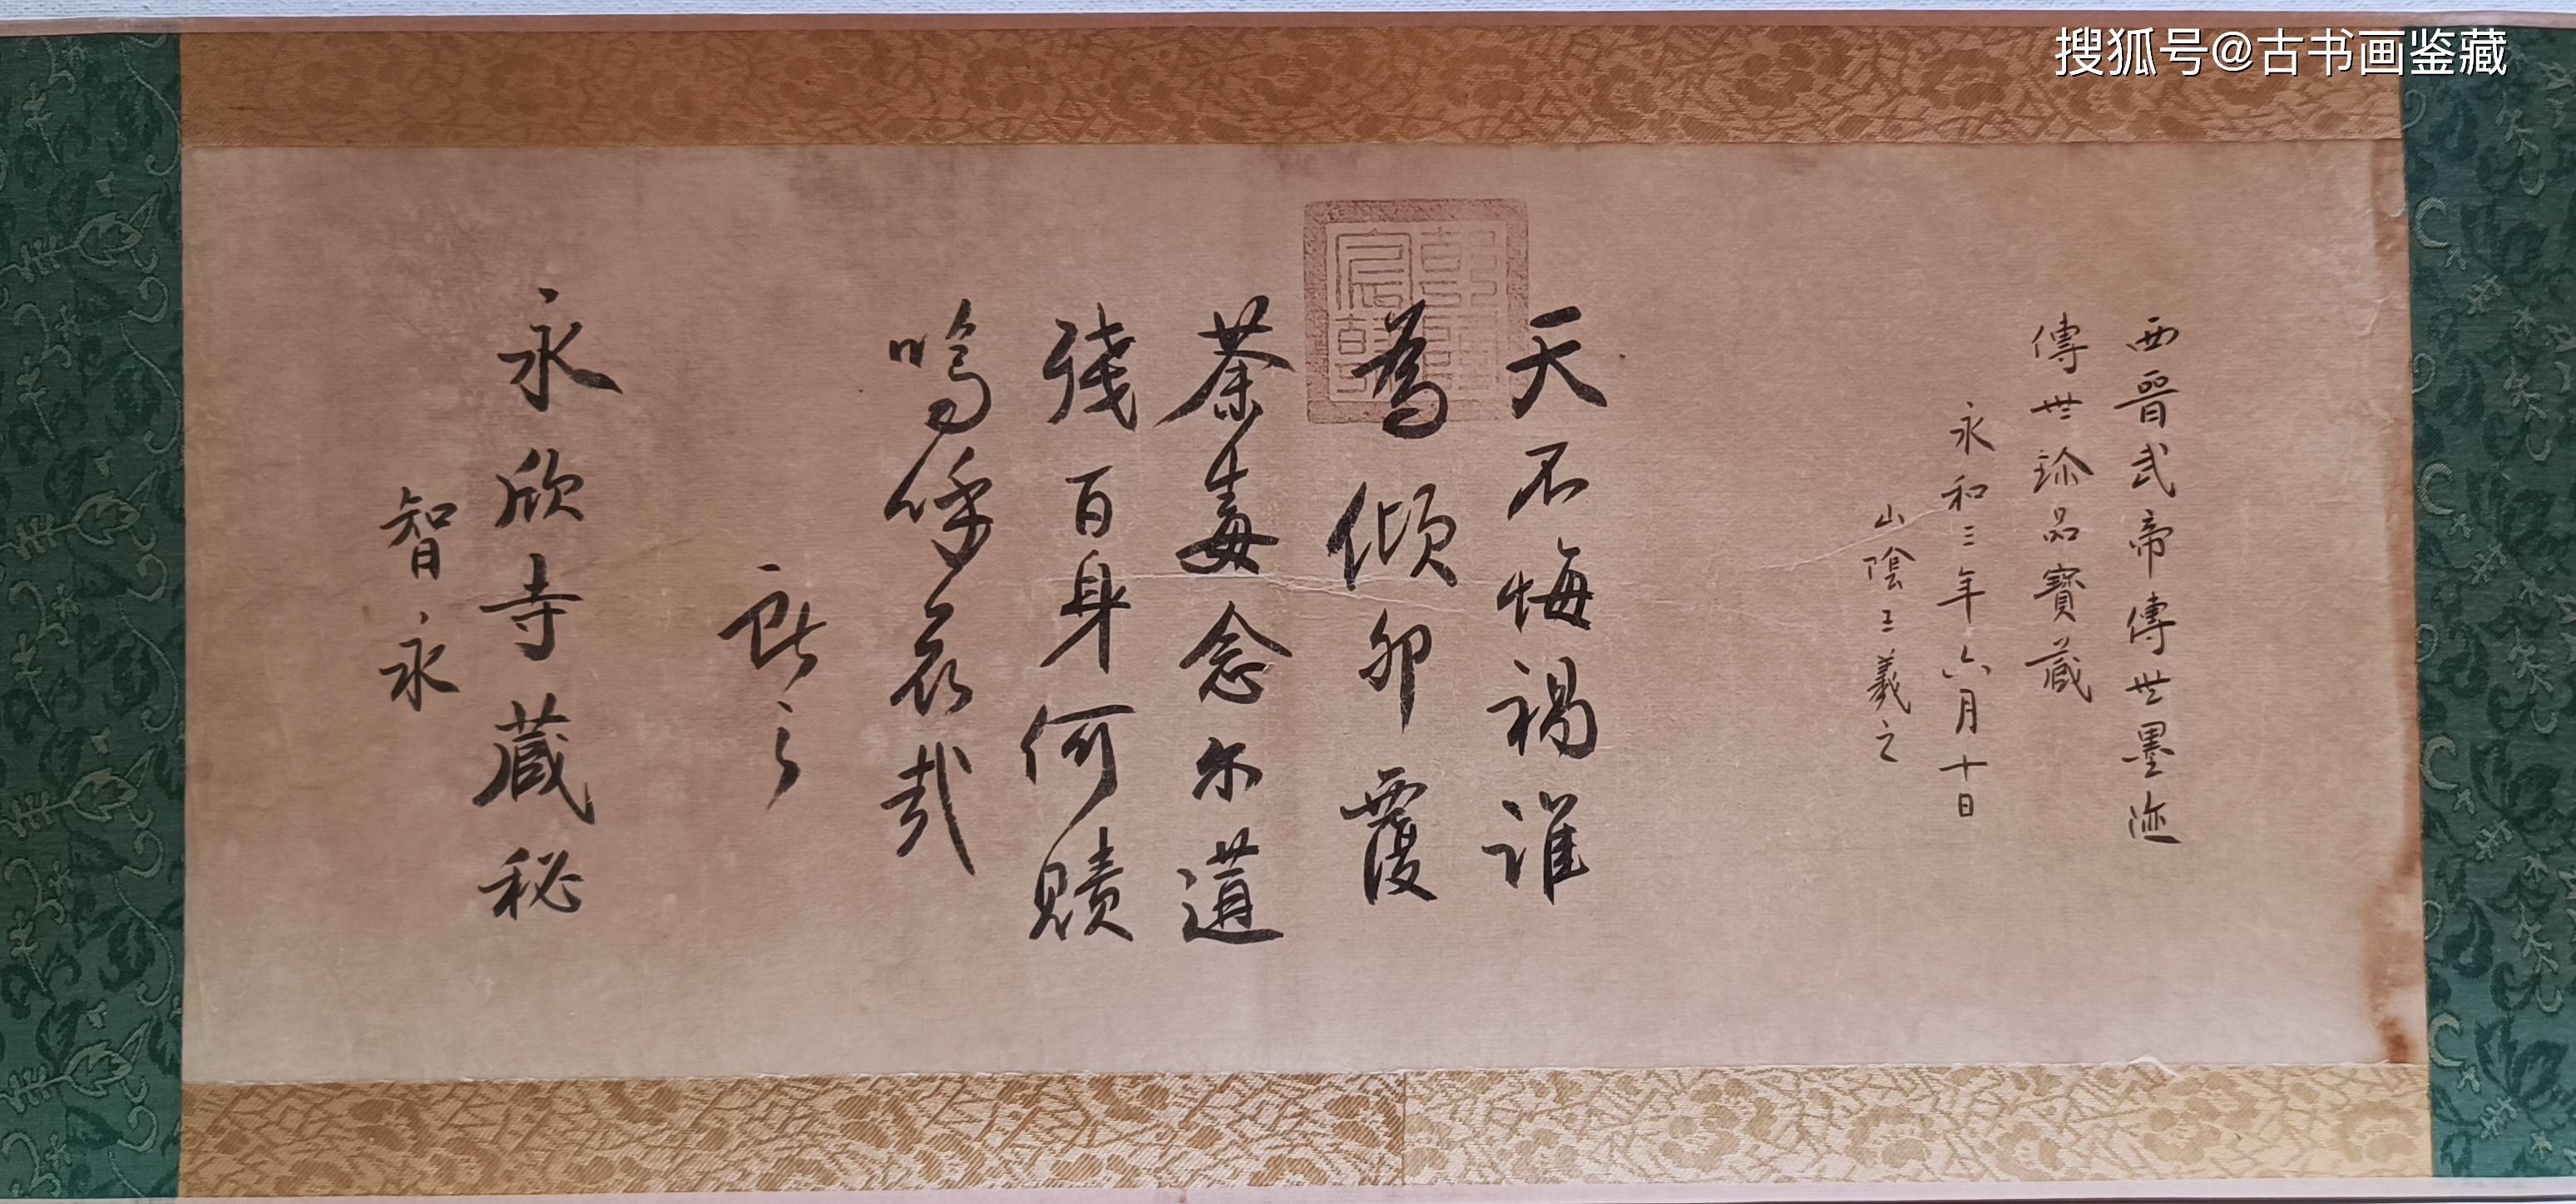 搜狐号@古书画鉴藏
西晉武帝傳世墨迹
傳世珎品寶蔵
永和三年六月十日
山陰王羲之
天不悔禍誰
為傾卵覆
荼毒念尔遘
残百身何贖
嗚呼哀哉
献之
永欣寺蔵秘
智永